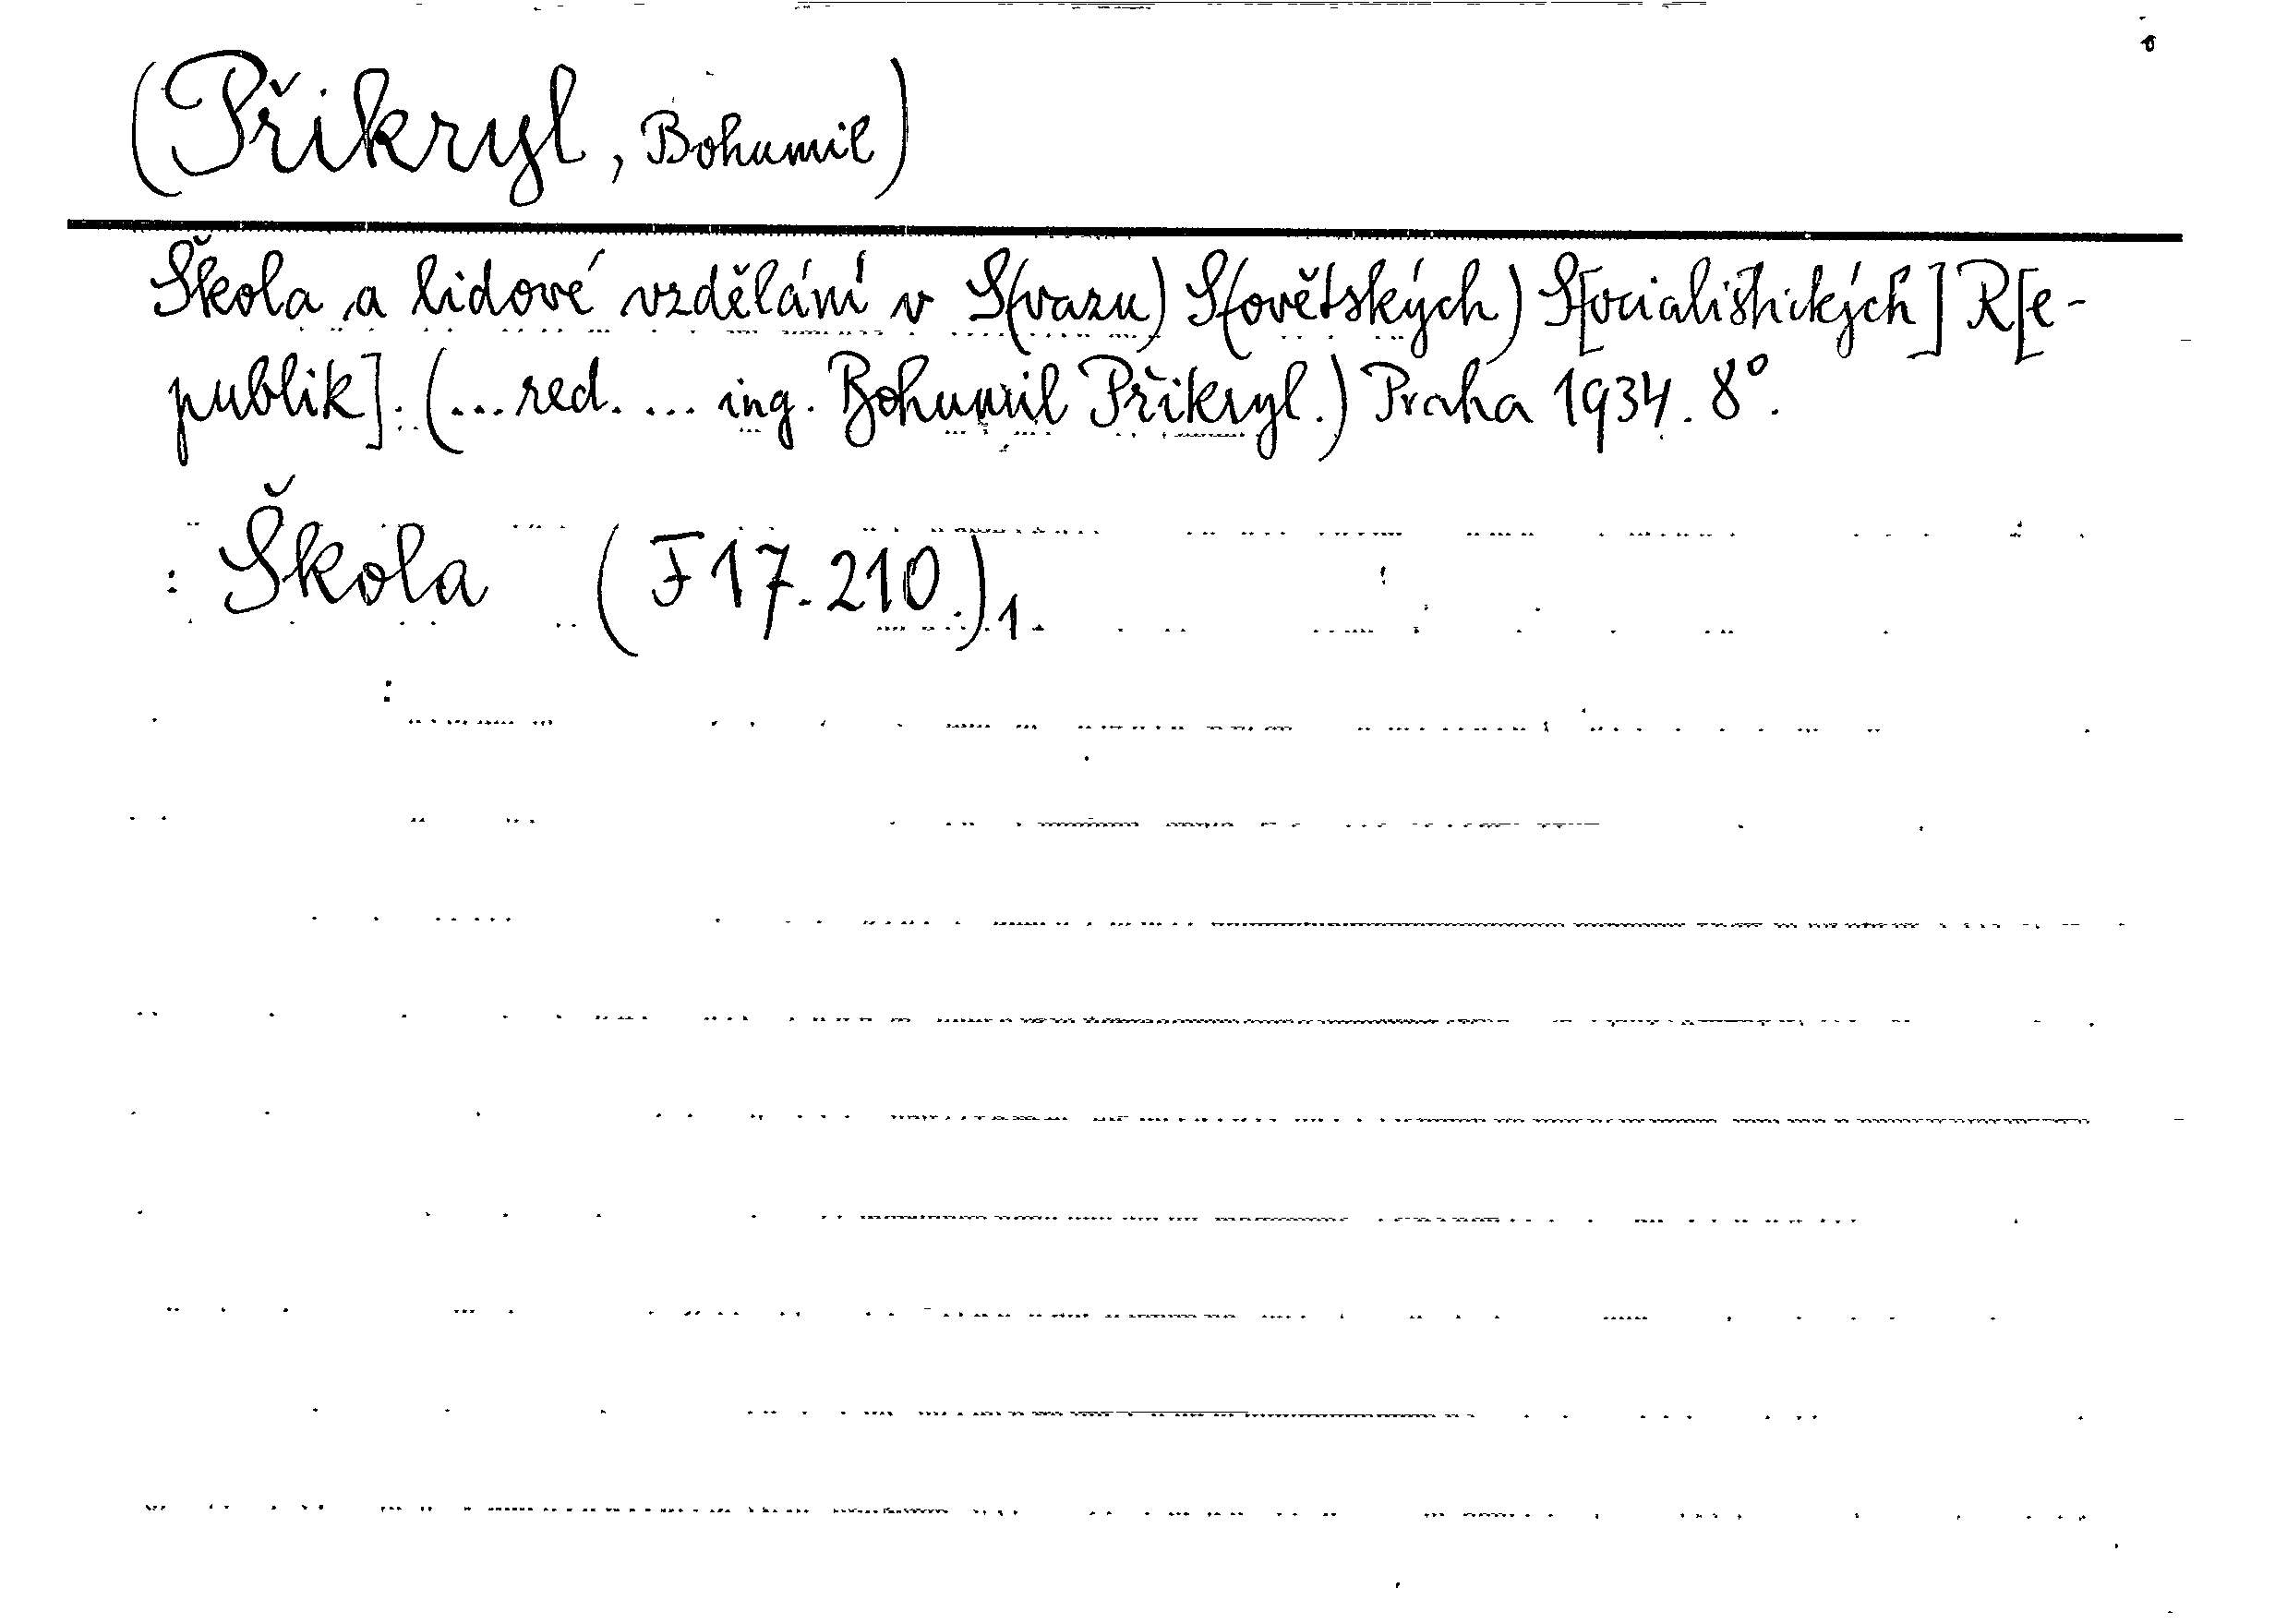 (Přikryl, Bohumil)
Škola a lidové vzdělání v S(vazu) S(ovětských) S[ocialistických] R[e-
publik]. (...red. ... ing. Bohumil Přikryl.) Praha 1934. 8°.
: Škola (F 17.210.)1.